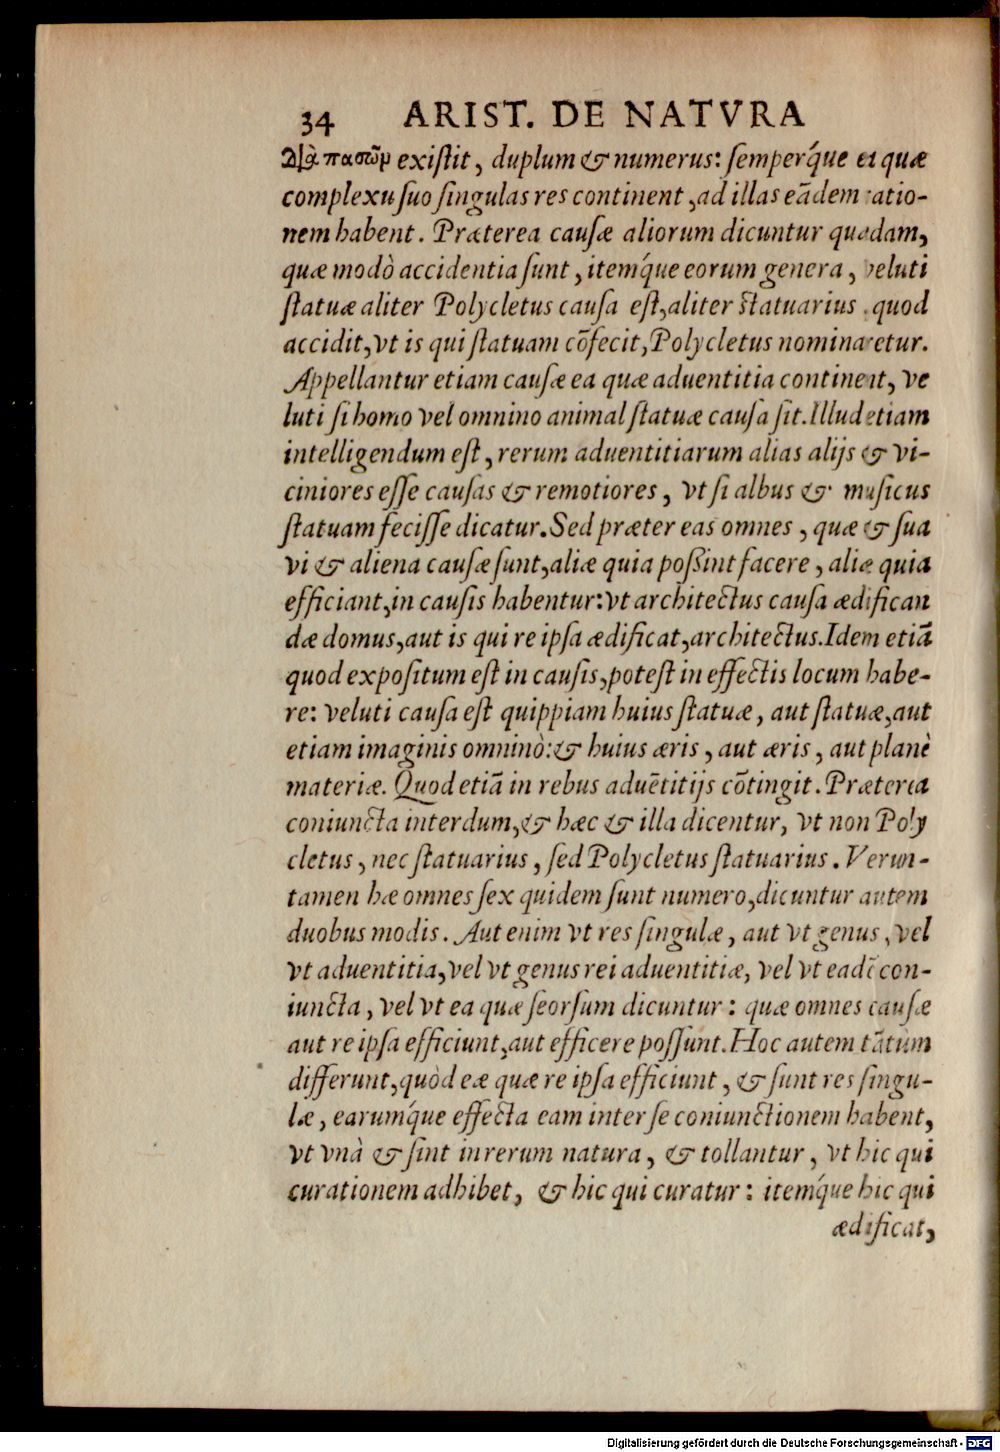 34 ARIST. DE NATVRA
διὰ πασῶν existit, duplum & numerus: semperq́ue ei quæ
complexu suo singulas res continent, ad illas eādem ratio-
nem habent. Præterea causæ aliorum dicuntur quædam,
quæ modò accidentia sunt, itemq́ue eorum genera, veluti
statuæ aliter Polycletus causa est, aliter statuarius. quod
accidit, vt is qui statuam cōfecit, Polycletus nominaretur.
Appellantur etiam causæ ea quæ aduentitia continent, ve
luti si homo vel omnino animal statuæ causa sit. Illud etiam
intelligendum est, rerum aduentitiarum alias alijs & vi-
ciniores esse causas & remotiores, vt si albus & musicus
statuam fecisse dicatur. Sed præter eas omnes, quæ & sua
vi & aliena causæ sunt, aliæ quia poßint facere, aliæ quia
efficiant, in causis habentur: vt architectus causa ædifican
dæ domus, aut is qui re ipsa ædificat, architectus. Idem etiā
quod expositum est in causis, potest in effectis locum habe-
re: veluti causa est quippiam huius statuæ, aut statuæ, aut
etiam imaginis omninò: & huius æris, aut æris, aut planè
materiæ. Quod etiā in rebus aduētitijs cōtingit. Præterea
coniuncta interdum, & hæc & illa dicentur, vt non Poly
cletus, nec statuarius, sed Polycletus statuarius. Verun-
tamen hæ omnes sex quidem sunt numero, dicuntur autem
duobus modis. Aut enim vt res singulæ, aut vt genus, vel
vt aduentitia, vel vt genus rei aduentitiæ, vel vt eadē con-
iuncta, vel vt ea quæ seorsum dicuntur: quæ omnes causæ
aut re ipsa efficiunt, aut efficere possunt. Hoc autem tātùm
differunt, quòd eæ quæ re ipsa efficiunt, & sunt res singu-
læ, earumq́ue effecta eam inter se coniunctionem habent,
vt vnà & sint in rerum natura, & tollantur, vt hic qui
curationem adhibet, & hic qui curatur: itemq́ue hic qui
ædificat,
Digitalisierung gefördert durch die Deutsche Forschungsgemeinschaft - DFG